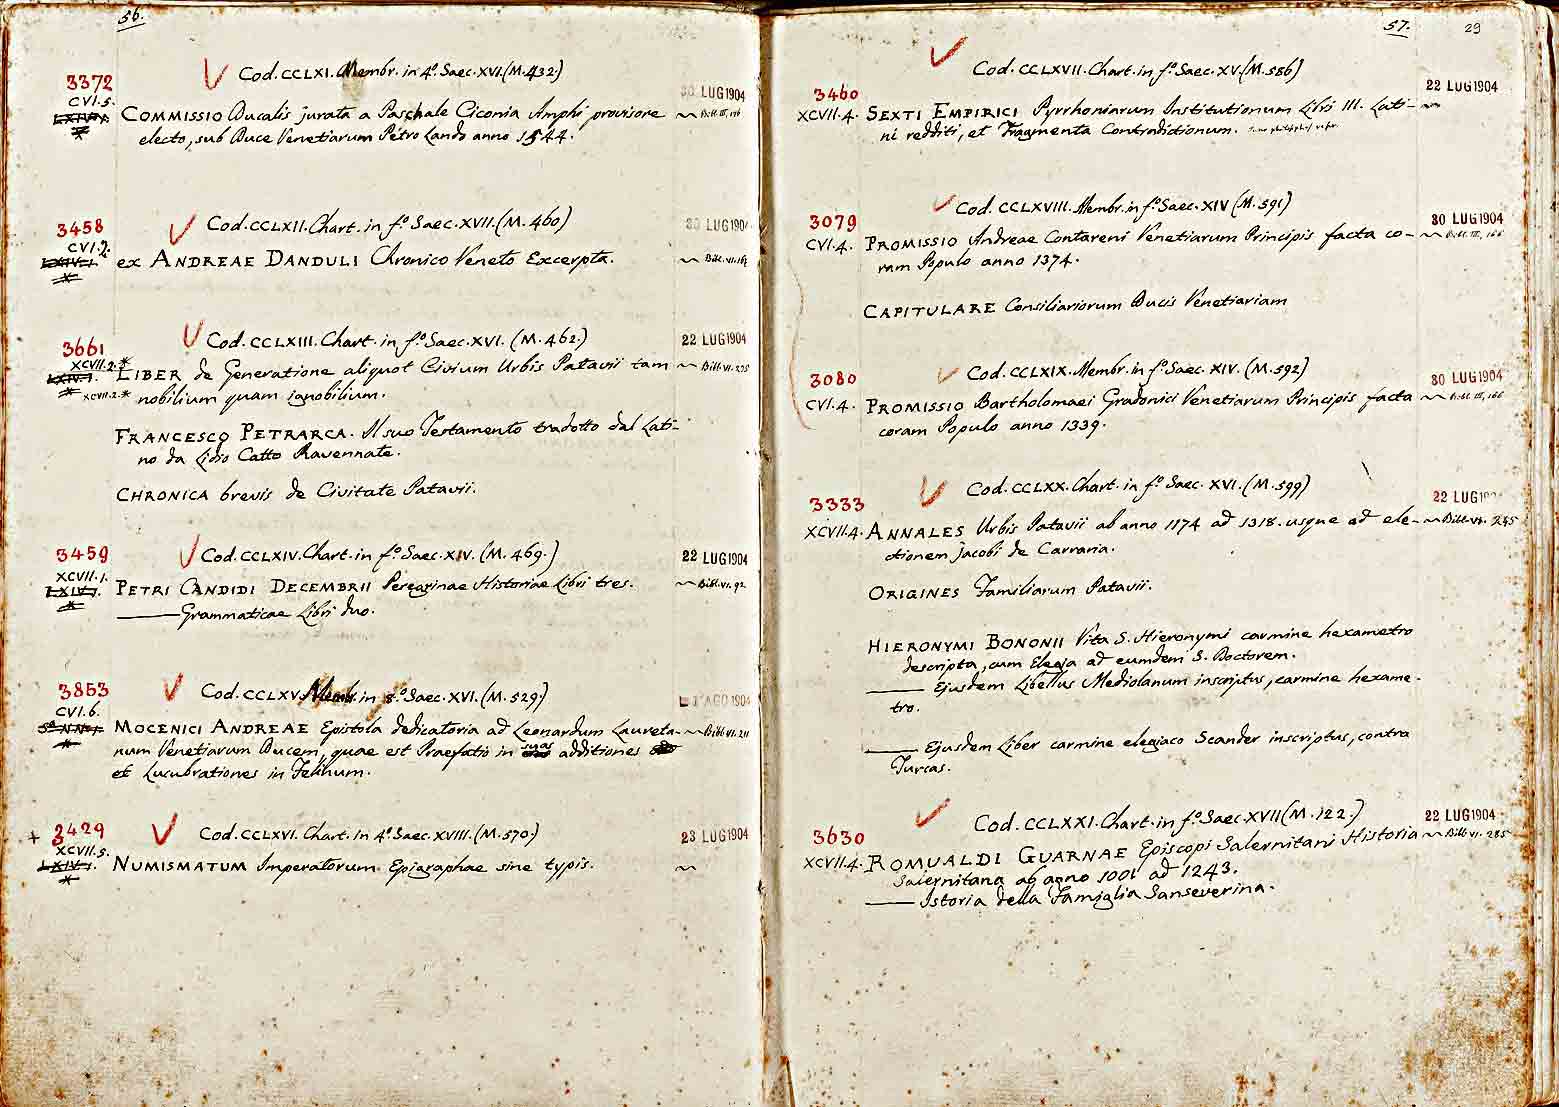 56.
3372
Cod. CCLXI. Membr. in 4.º Saec. XVI. (M. 432.)
30 LUG 1904
CVI. 5.
LXIV. 1.
COMMISSIO Ducalis jurata a Paschale Ciconia Amphi provisore
electo, sub Duce Venetiarum Petro Lando anno 1544.
3458
Cod. CCLXII. Chart. in f.º Saec. XVII. (M. 460)
30 LUG 190
CVI. 2.
LXIV. 1
ex ANDREAE DANDULI Chronico Veneto Excerpta.
Bibl. VI. 169
3661
Cod. CCLXIII. Chart. in f.º Saec. XVI. (M. 462.)
22 LUG 1904
XCVII. 2. *
LXIV. 1.
LIBER de Generatione aliquot Civium Urbis Patavii tam
Bibl. VI. 235
XCVII. 2. *
nobilium quam ignobilium.
FRANCESCO PETRARCA. Il suo Testamento tradotto dal Lati-
no da Lidio Catto Ravennate.
CHRONICA brevis de Civitate Patavii.
3459
Cod. CCLXIV. Chart. in f.º Saec. XIV. (M. 469.)
22 LUG 1904
XCVII. 1.
LXIV. 1.
PETRI CANDIDI DECEMBRII Peregrinae Historiae Libri tres.
Bibl. VI. 92
—— Grammaticae Libri duo.
3853
Cod. CCLXV. Membr. in 8.º Saec. XVI. (M. 529)
1º AGO 1904
CVI. 6.
MOCENICI ANDREAE Epistola dedicatoria ad Leonardum Laureta-
Bibl. VI. 211
num Venetiarum Ducem, quae est Praefatio in suas additiones
et Lucubrationes in Felinum.
+ 2429
Cod. CCLXVI. Chart. in 4.º Saec. XVIII. (M. 570.)
23 LUG 1904
XCVII. 5.
LXIV. 1.
NUMISMATUM Imperatorum Epigraphae sine typis.
57. 29
3460
Cod. CCLXVII. Chart. in f.º Saec. XV. (M. 586)
22 LUG 1904
XCVII. 4.
SEXTI EMPIRICI Pyrrhoniarum Institutionum Libri III. Lati-
ni redditi, et Fragmenta Contradictionum.
3079
Cod. CCLXVIII. Membr. in f.º Saec. XIV (M. 591)
30 LUG 1904
CVI. 4.
PROMISSIO Andreae Contareni Venetiarum Principis facta co-
Bibl. III, 166
ram Populo anno 1374.
CAPITULARE Consiliariorum Ducis Venetiarum
3080
Cod. CCLXIX. Membr. in f.º Saec. XIV. (M. 592)
30 LUG 1904
CVI. 4.
PROMISSIO Bartholomaei Gradonici Venetiarum Principis facta
Bibl. III, 166
coram Populo anno 1339.
3333
Cod. CCLXX. Chart. in f.º Saec. XVI. (M. 599)
22 LUG 1904
XCVII. 4.
ANNALES Urbis Patavii ab anno 1174 ad 1318. usque ad ele-
Bibl. VI. 235
ctionem Jacobi de Carraria.
ORIGINES Familiarum Patavii.
HIERONYMI BONONII Vita S. Hieronymi carmine hexametro
descripta, cum Elegia ad eumdem S. Doctorem.
—— Ejusdem Libellus Mediolanum inscriptus, carmine hexame-
tro.
—— Ejusdem Liber carmine elegiaco Scander inscriptus, contra
Turcas.
3630
Cod. CCLXXI. Chart. in f.º Saec. XVII (M. 122.)
22 LUG 1904
XCVII. 4.
ROMUALDI GUARNAE Episcopi Salernitani Historia
Bibl. VI. 285
Salernitana ab anno 1001 ad 1243.
—— Istoria della Famiglia Sanseverina.